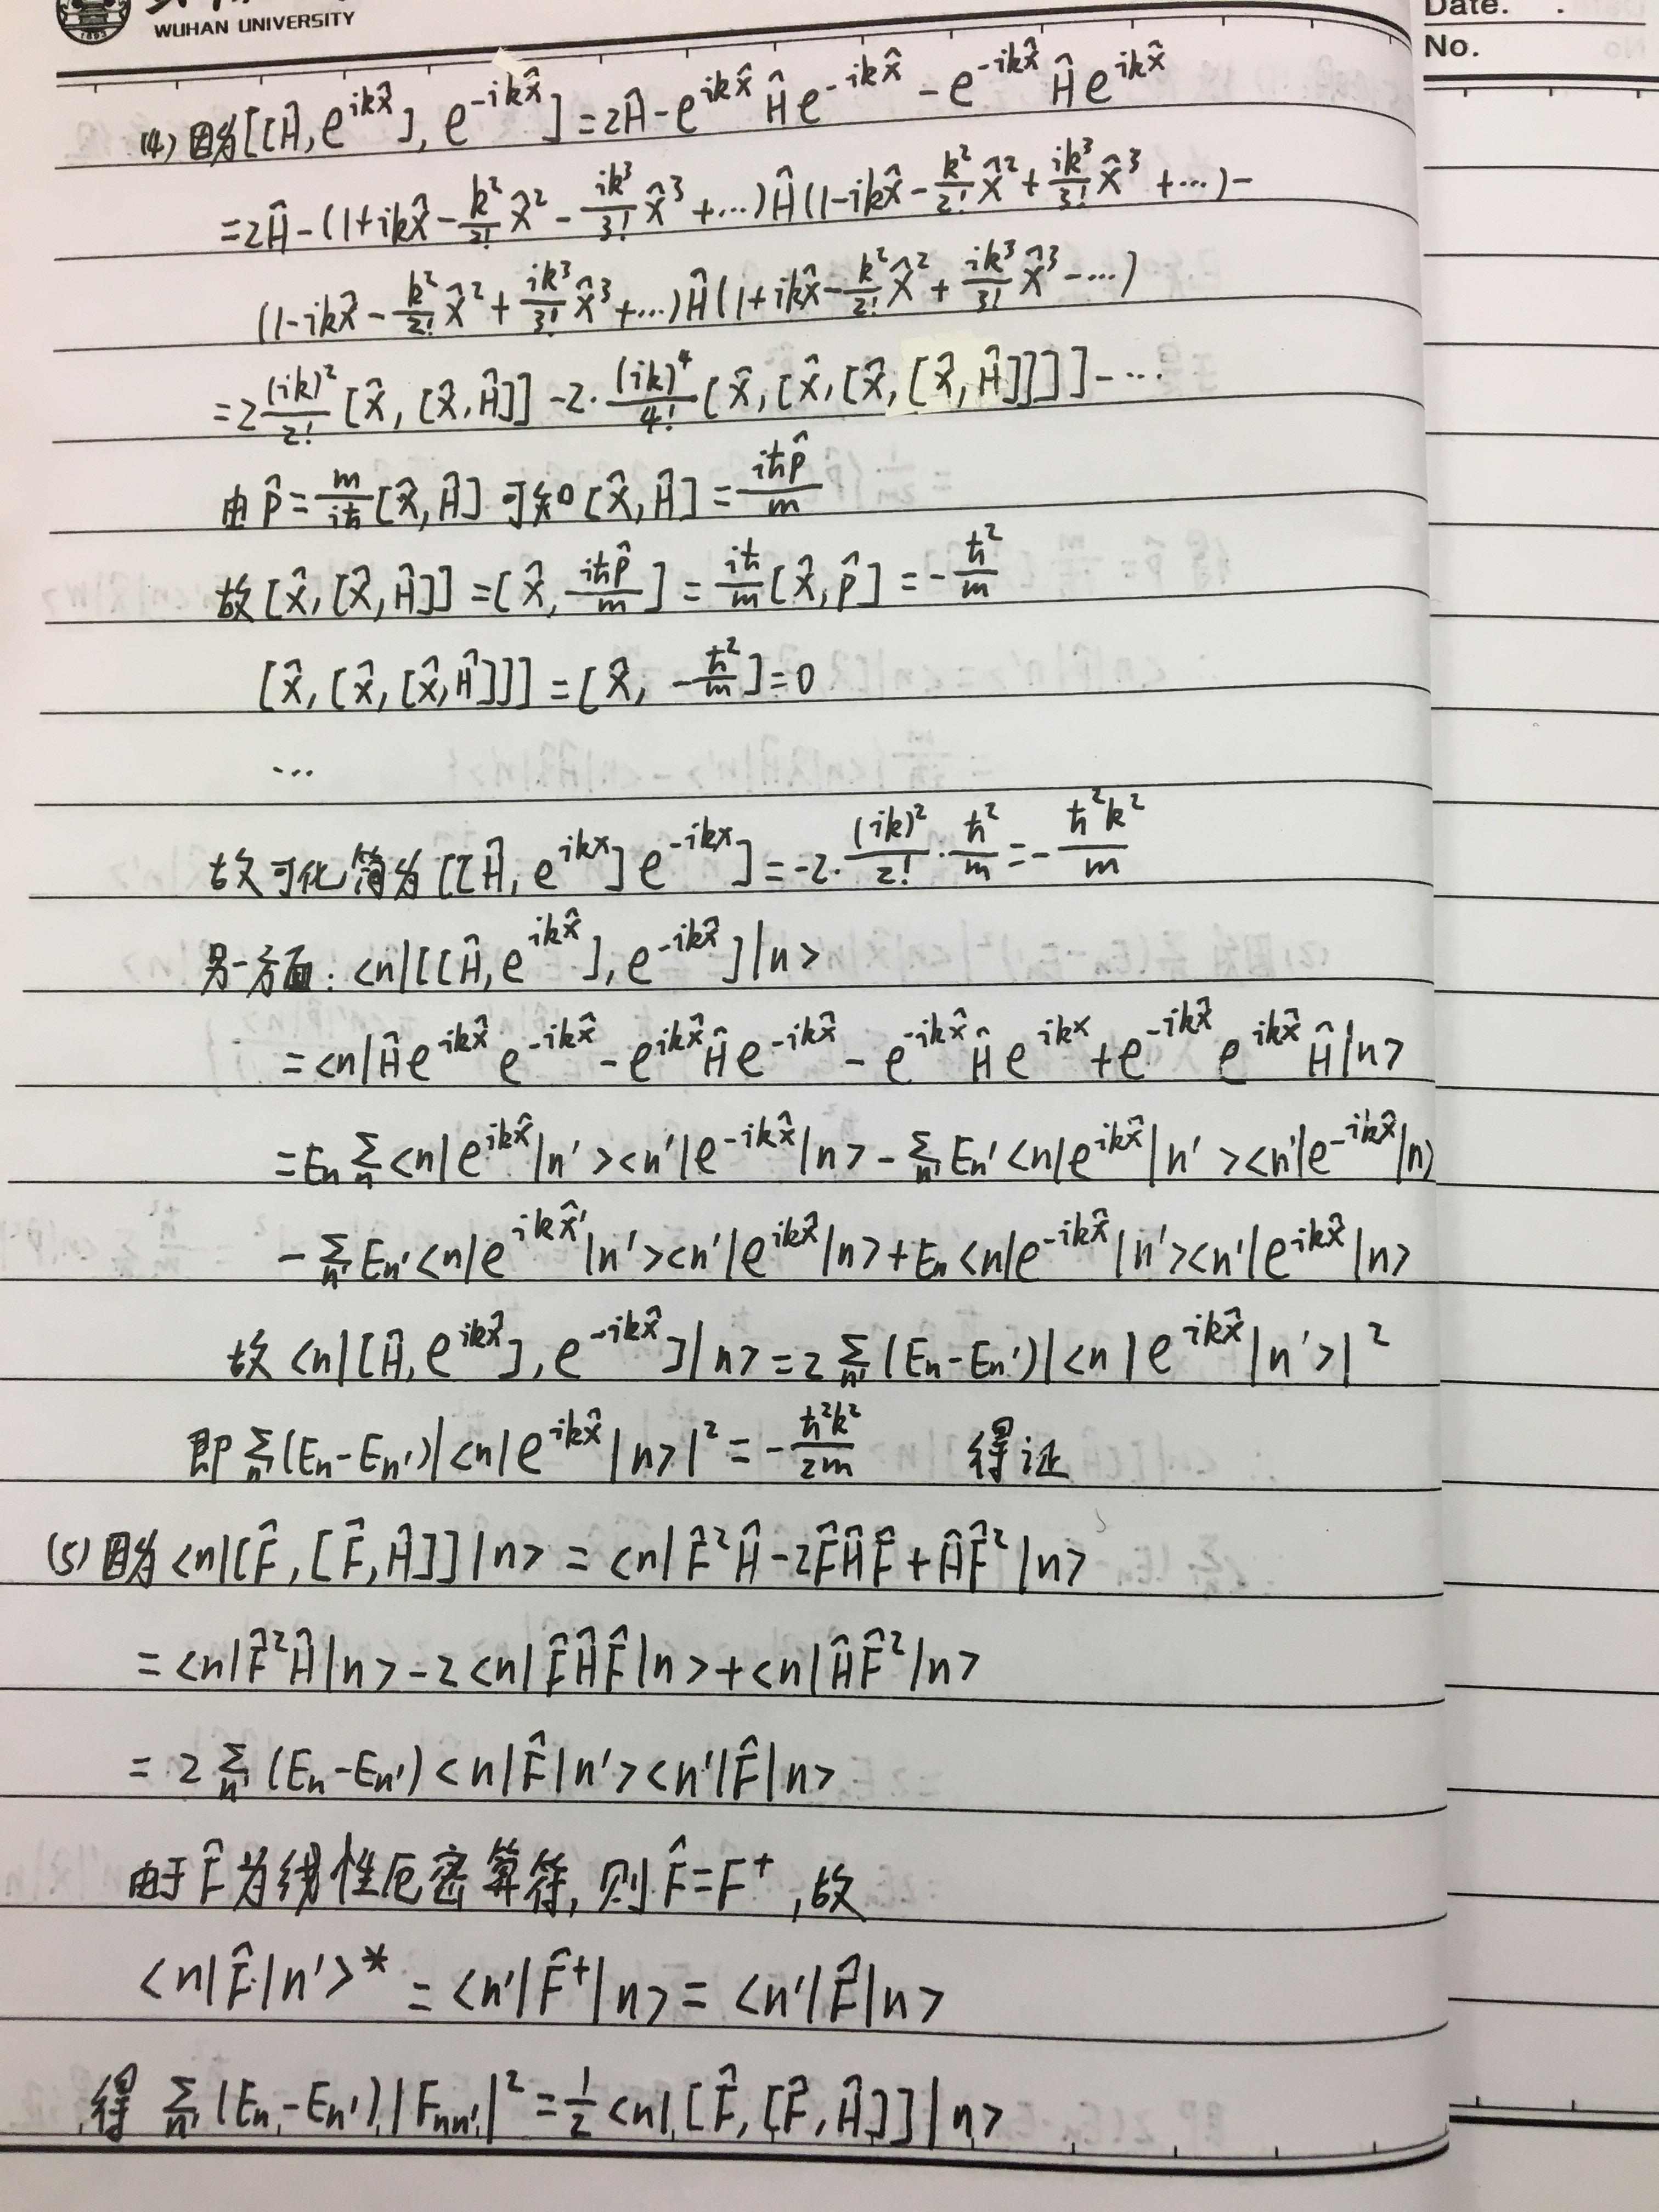 WUHAN UNIVERSITY
Date.
No.
(4) 因为[[Ĥ, e^{ikx̂}], e^{-ikx̂}] = 2Ĥ - e^{ikx̂} Ĥ e^{-ikx̂} - e^{-ikx̂} Ĥ e^{ikx̂}
= 2Ĥ - (1+ikx̂ - \frac{k²}{2!} x̂² - \frac{ik³}{3!} x̂³ + ...) Ĥ (1-ikx̂ - \frac{k²}{2!} x̂² + \frac{ik³}{3!} x̂³ + ...) -
(1-ikx̂ - \frac{k²}{2!} x̂² + \frac{ik³}{3!} x̂³ + ...) Ĥ (1+ikx̂ - \frac{k²}{2!} x̂² + \frac{ik³}{3!} x̂³ - ...)
= 2 \frac{(ik)²}{2!} [x̂, [x̂, Ĥ]] - 2· \frac{(ik)⁴}{4!} [x̂, [x̂, [x̂, [x̂, Ĥ]]]] - ...
由 p̂ = \frac{m}{iħ} [x̂, Ĥ] 可知 [x̂, Ĥ] = \frac{iħp̂}{m}
故 [x̂, [x̂, Ĥ]] = [x̂, \frac{iħp̂}{m}] = \frac{iħ}{m} [x̂, p̂] = - \frac{ħ²}{m}
[x̂, [x̂, [x̂, Ĥ]]] = [x̂, - \frac{ħ²}{m}] = 0
...
故可化简为 [[Ĥ, e^{ikx}] e^{-ikx}] = -2· \frac{(ik)²}{2!} · \frac{ħ²}{m} = - \frac{ħ²k²}{m}
另一方面: <n|[[Ĥ, e^{ikx̂}], e^{-ikx̂}]|n>
= <n|Ĥ e^{ikx̂} e^{-ikx̂} - e^{ikx̂} Ĥ e^{-ikx̂} - e^{-ikx̂} Ĥ e^{ikx} + e^{-ikx̂} e^{ikx̂} Ĥ|n>
= En Σ_n <n|e^{ikx̂}|n'><n'|e^{-ikx̂}|n> - Σ_{n'} En' <n|e^{ikx̂}|n'><n'|e^{-ikx̂}|n>
- Σ_{n'} En' <n|e^{ikx̂'}|n'><n'|e^{ikx̂}|n> + En <n|e^{-ikx̂}|n'><n'|e^{ikx̂}|n>
故 <n|[Ĥ, e^{ikx̂}], e^{-ikx̂}]|n> = 2 Σ_{n'} (En - En')|<n|e^{ikx̂}|n'>|²
即 Σ_{n'} (En - En')|<n|e^{ikx̂}|n>|² = - \frac{ħ²k²}{2m} 得证
(5) 因为 <n|[F̂, [F̂, Ĥ]]|n> = <n|F̂²Ĥ - 2F̂ĤF̂ + ĤF̂²|n>
= <n|F̂²Ĥ|n> - 2<n|F̂ĤF̂|n> + <n|ĤF̂²|n>
= 2 Σ_{n'} (En - En') <n|F̂|n'><n'|F̂|n>
由于 F̂ 为线性厄密算符, 则 F̂ = F⁺, 故
<n|F̂|n'>* = <n'|F̂⁺|n> = <n'|F̂|n>
得 Σ_{n'} (En - En')|Fnn'|² = \frac{1}{2} <n|[F̂, [F̂, Ĥ]]|n>